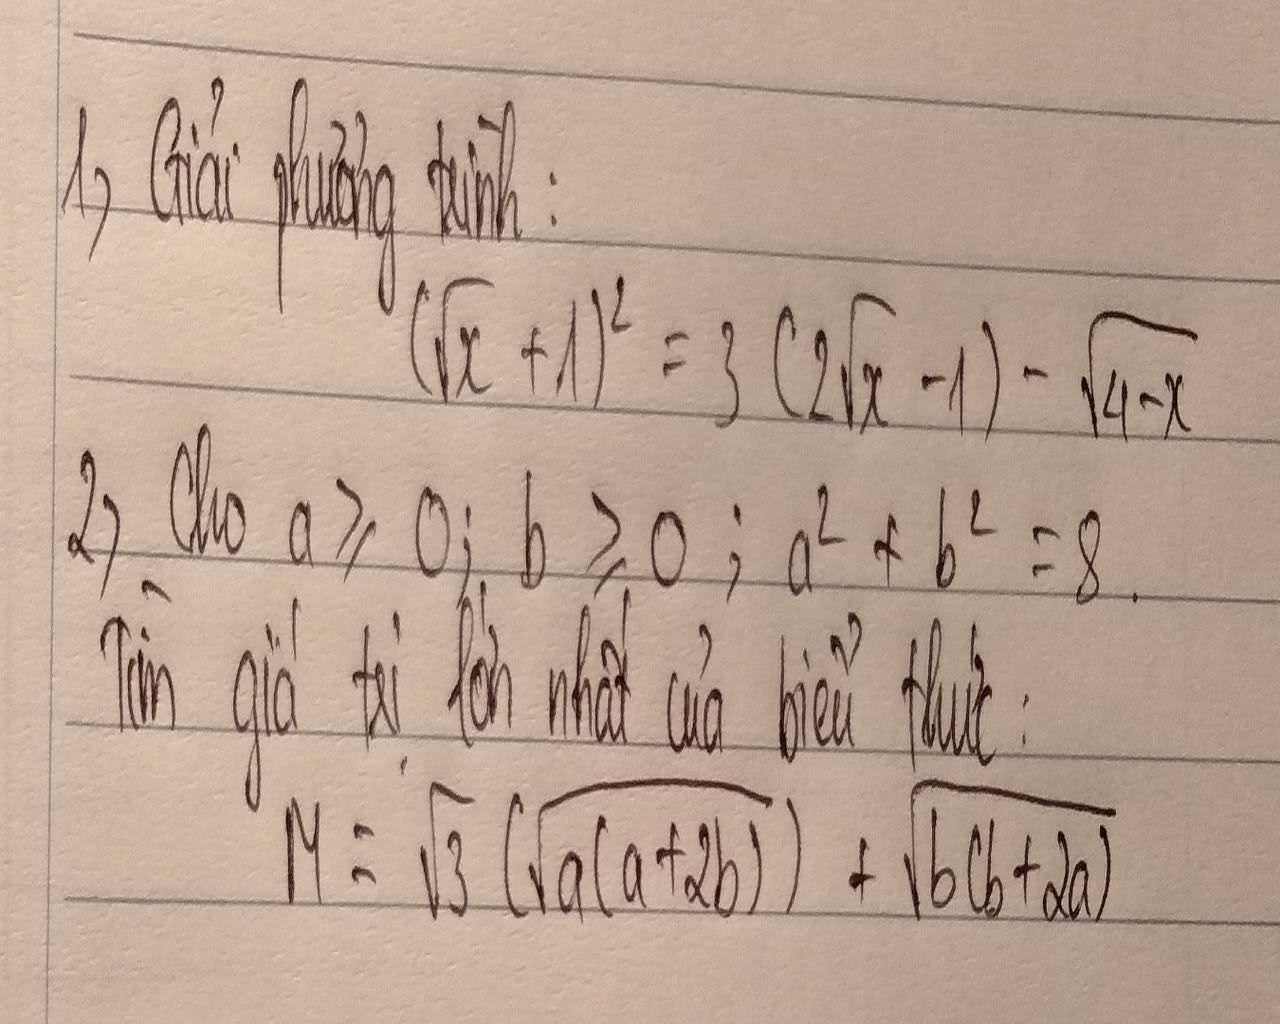 1, Giải phương trình:
(√x + 1)² = 3 (2√x - 1) - √(4-x)
2, Cho a ⩾ 0; b ⩾ 0 ; a² + b² = 8.
Tìm giá trị lớn nhất của biểu thức:
M = √3 (√(a(a+2b))) + √(b(b+2a))